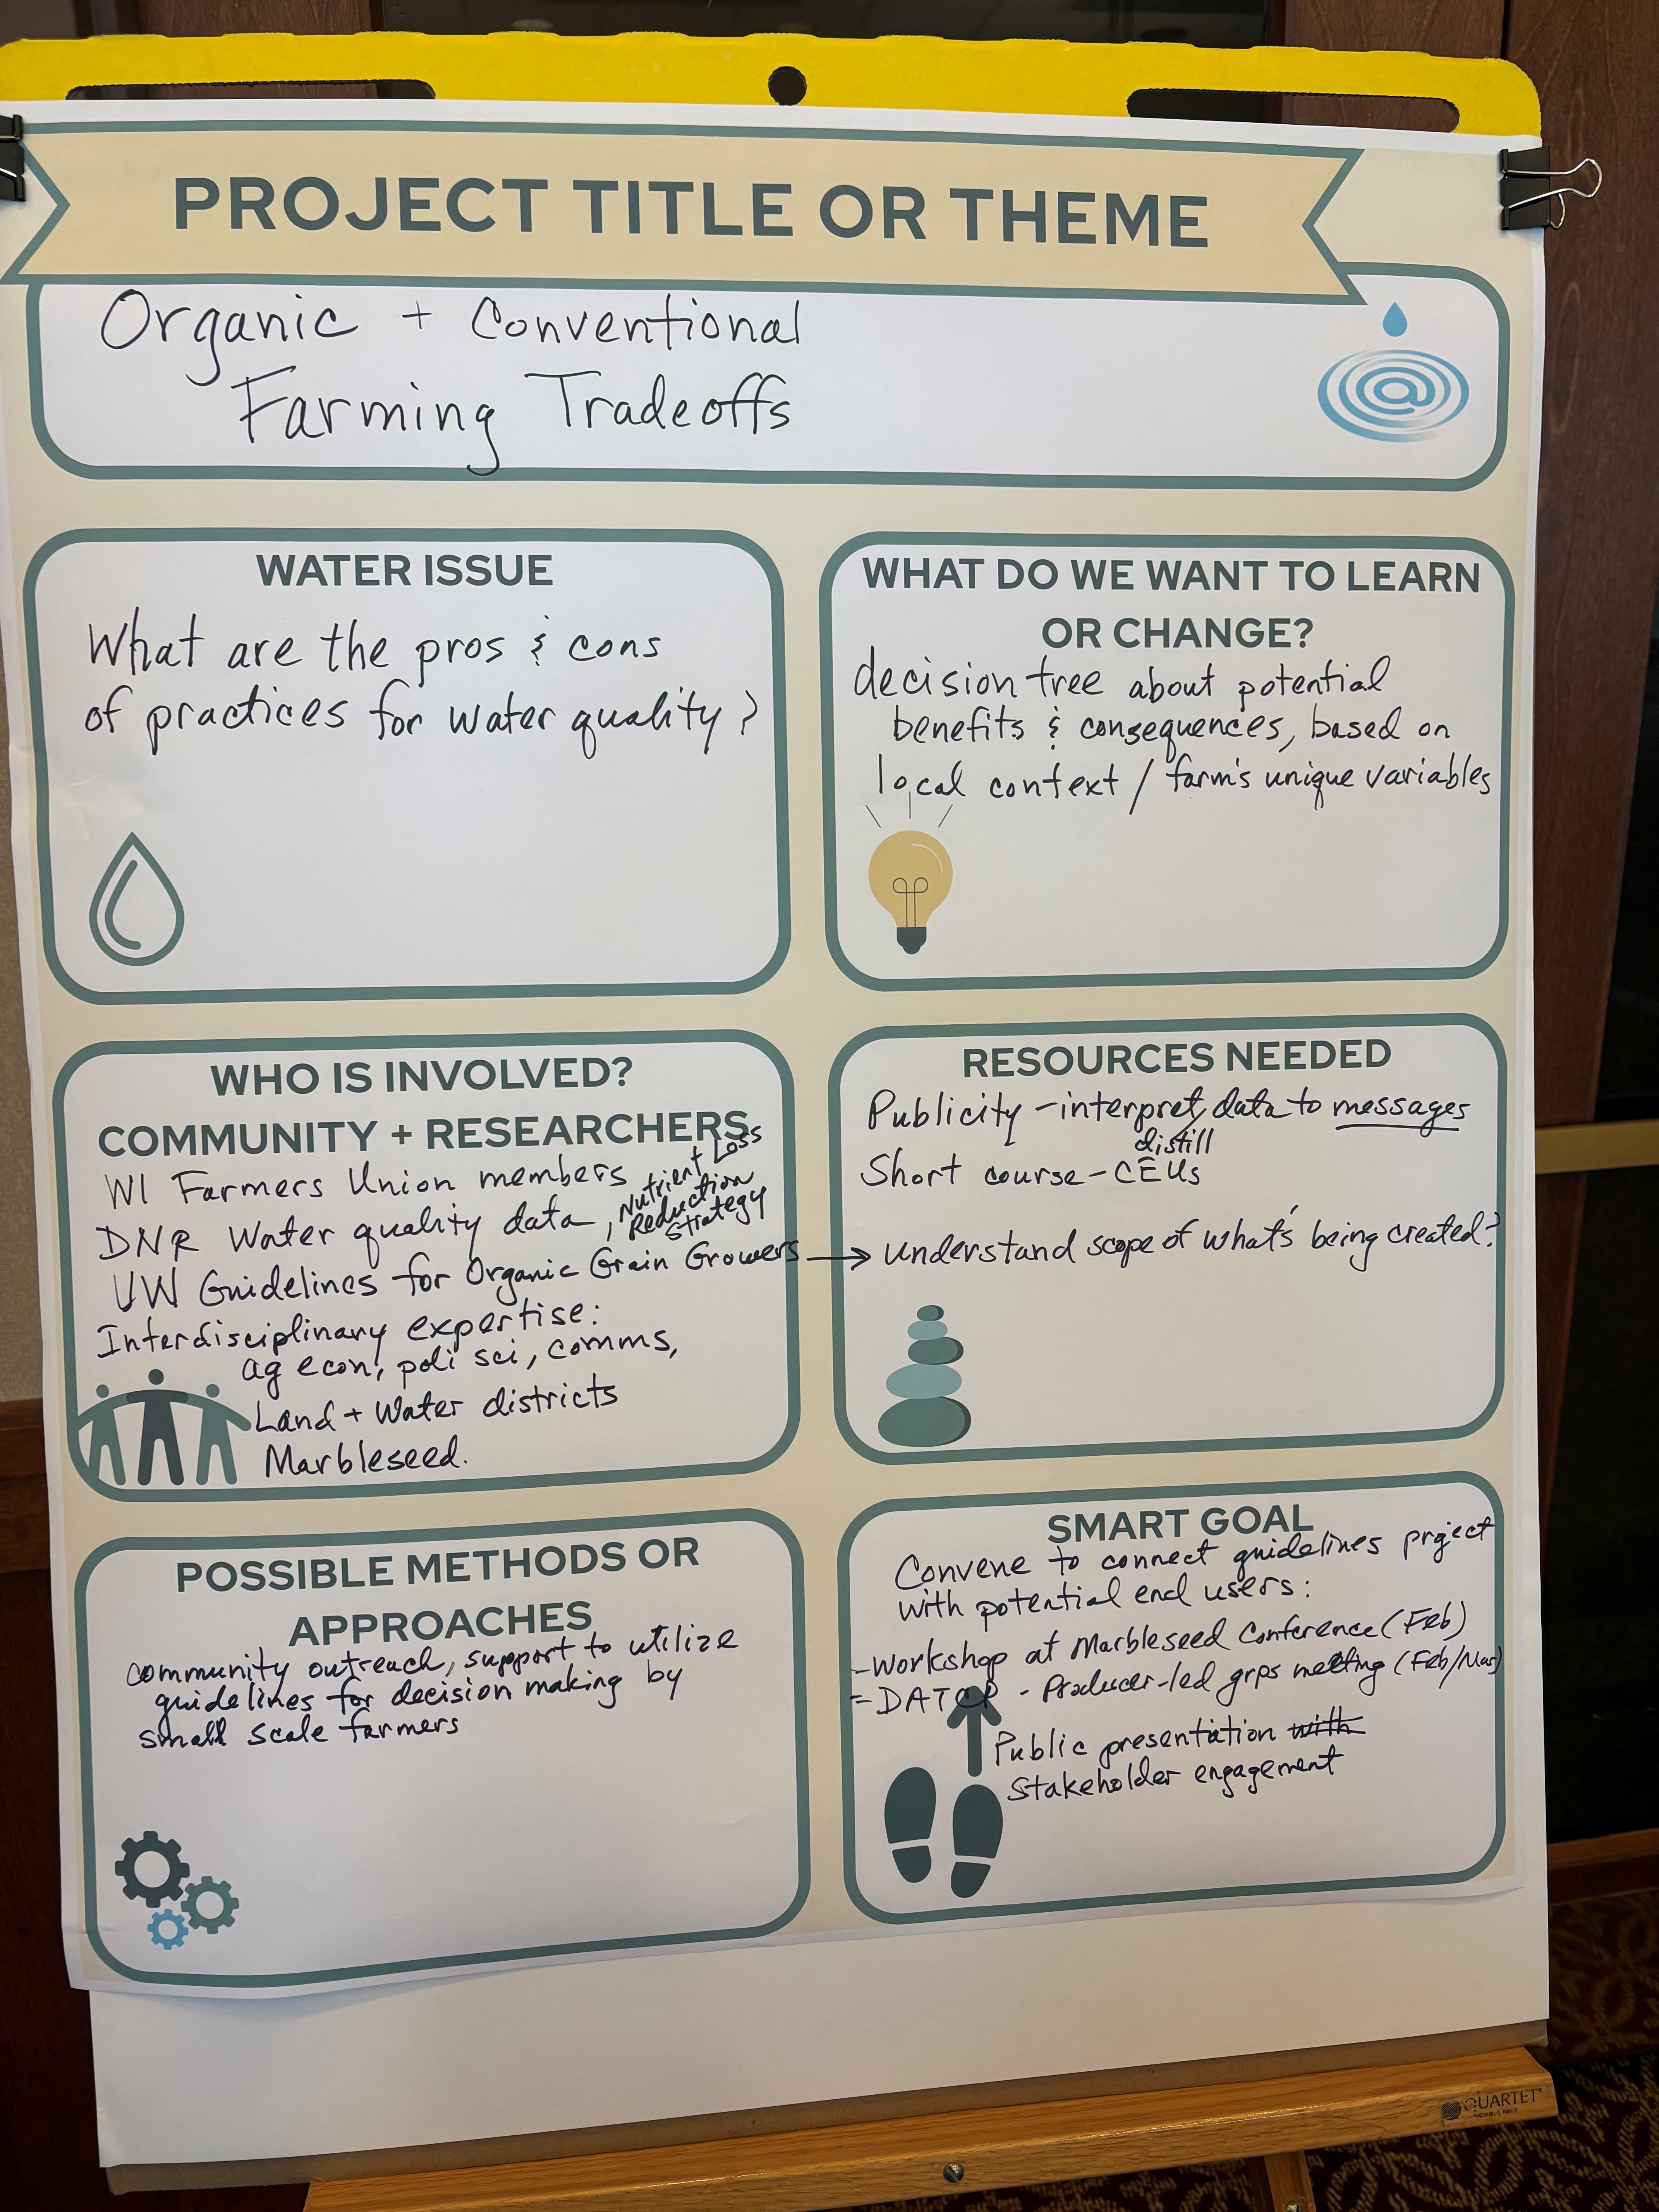 PROJECT TITLE OR THEME
Organic + Conventional
Farming Tradeoffs
WATER ISSUE
What are the pros & cons
of practices for water quality?
WHAT DO WE WANT TO LEARN
OR CHANGE?
decision tree about potential
benefits & consequences, based on
local context / farm's unique variables
WHO IS INVOLVED?
COMMUNITY + RESEARCHERS
WI Farmers Union members
DNR Water quality data, Nutrient Loss
Reduction
Strategy
UW Guidelines for Organic Grain Growers →
Interdisciplinary expertise:
ag econ, poli sci, comms,
Land + Water districts
Marbleseed.
RESOURCES NEEDED
Publicity - interpret, data to messages
distill
Short course - CEUs
understand scope of what's being created?
POSSIBLE METHODS OR
APPROACHES
community outreach, support to utilize
guidelines for decision making by
small scale farmers
SMART GOAL
Convene to connect guidelines project
with potential end users:
- Workshop at Marbleseed Conference (Feb)
= DATCP - Producer-led grps meeting (Feb/Mar)
Public presentation with
Stakeholder engagement
QUARTET